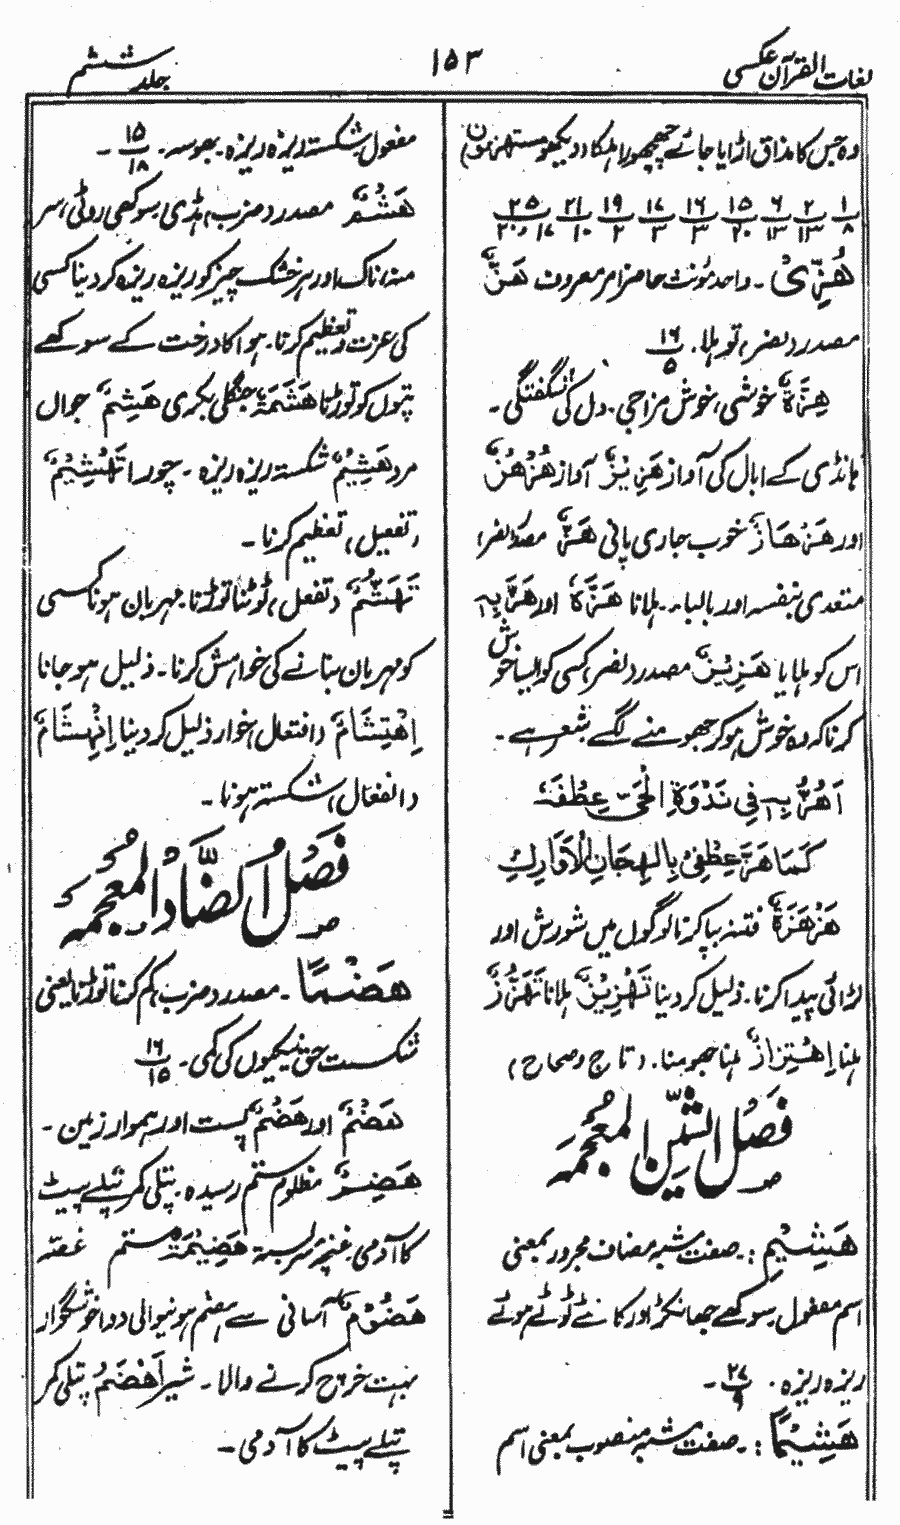 لغات القرآن عکسی
۱۵۳
جلد ششم
وہ جس کا مذاق اڑایا جائے چھچھورا ہلکا، دیکھو مستھزءون
۱/۸ ۲/۱۳ ۶/۱۳ ۱۵/۲۰ ۱۶/۳ ۱۷/۳ ۱۹/۲ ۲۱/۱۰ ۲۵/۱۷ و ۲۰
ھُزِّیْ۔ واحد مؤنث حاضر امر معروف ھَزٌّ
مصدر (نصر) تو ہلا۔ ۱۶/۵
ھِزَّۃٌ خوشی، خوش مزاجی۔ دل کی شگفتگی۔
ہانڈی کے ابال کی آواز ھَزِیْزٌ آواز ھُزْھُزٌ
اور ھَزْھَازٌ خوب جاری پانی ھَزٌّ مصدر (نصر)
متعدی بنفسہ اور بالباء۔ ہلانا ھَزَّہٗ اور ھَزَّ بِہٖ
اس کو ہلایا ھَزِیْزٌ مصدر (نصر) کسی کو ایسا خوش
کرنا کہ وہ خوش ہو کر جھومنے لگے شعر ہے۔
اَھُزُّ بِہٖ فِی نَدْوَۃِ الْحَیِّ عِطْفَہٗ
کَمَا ھَزَّ عِطْفِیْ بِالْھِجَانِ الْاَوَارِکِ
ھَزْھَزَۃٌ فتنہ بپا کرنا لوگوں میں شورش اور
لڑائی پیدا کرنا۔ ذلیل کردینا تَھْزِیْزٌ ہلانا تَھَزُّزٌ
ہلنا اِھْتِزَازٌ ہلنا جھومنا۔ (تاج و صحاح)
فَصْلُ الشِّیْنِ الْمُعْجَمَہ
ھَشِیْمِ :۔ صفت مشبہ مضاف مجرور بمعنی
اسم مفعول سوکھے جھانکڑ اور کانٹے ٹوٹے ہوئے
ریزہ ریزہ۔ ۲۷/۹ ۔
ھَشِیْمًا :۔ صفت مشبہ منصوب بمعنی اسم
مفعول شکستہ ریزہ ریزہ۔ بھوسہ۔ ۱۵/۱۸ ۔
ھَشْمٌ مصدر (ضرب) ہڈی سوکھی روٹی، سر
منہ، ناک اور ہر خشک چیز کو ریزہ ریزہ کردینا کسی
کی عزت و تعظیم کرنا۔ ہوا کا درخت کے سوکھے
پتوں کو توڑنا ھَشَمَۃٌ جنگلی بکری ھَشِمٌ جواں
مرد ھَشِیْمٌ شکستہ ریزہ ریزہ۔ چورا تَھْشِیْمٌ
(تفعیل) تعظیم کرنا۔
تَھَشُّمٌ (تفعل) ٹوٹنا توڑنا۔ مہربان ہونا کسی
کو مہربان بنانے کی خواہش کرنا۔ ذلیل ہوجانا
اِھْتِشَامٌ (افتعال) خوار ذلیل کردینا اِنْھِشَامٌ
(انفعال) شکستہ ہونا۔
فَصْلُ الضَّادِ الْمُعْجَمَہ
ھَضْمًا ۔ مصدر (ضرب) کم کرنا توڑنا یعنی
شکست حق نیکیوں کی کمی۔ ۱۶/۱۵
ھَضْمٌ اور ھَضْمٌ پست اور ہموار زمین۔
ھَضِیْمٌ مظلوم ستم رسیدہ۔ پتلی کمر پتلے پیٹ
کا آدمی غنچہ سربستہ ھَضِیْمَۃٌ ستم غصہ
ھَضُوْمٌ آسانی سے ہضم ہونیوالی دوا خوشگوار
بہت خرچ کرنے والا۔ شیر اَھْضَمُ پتلی کمر
پتلے پیٹ کا آدمی۔